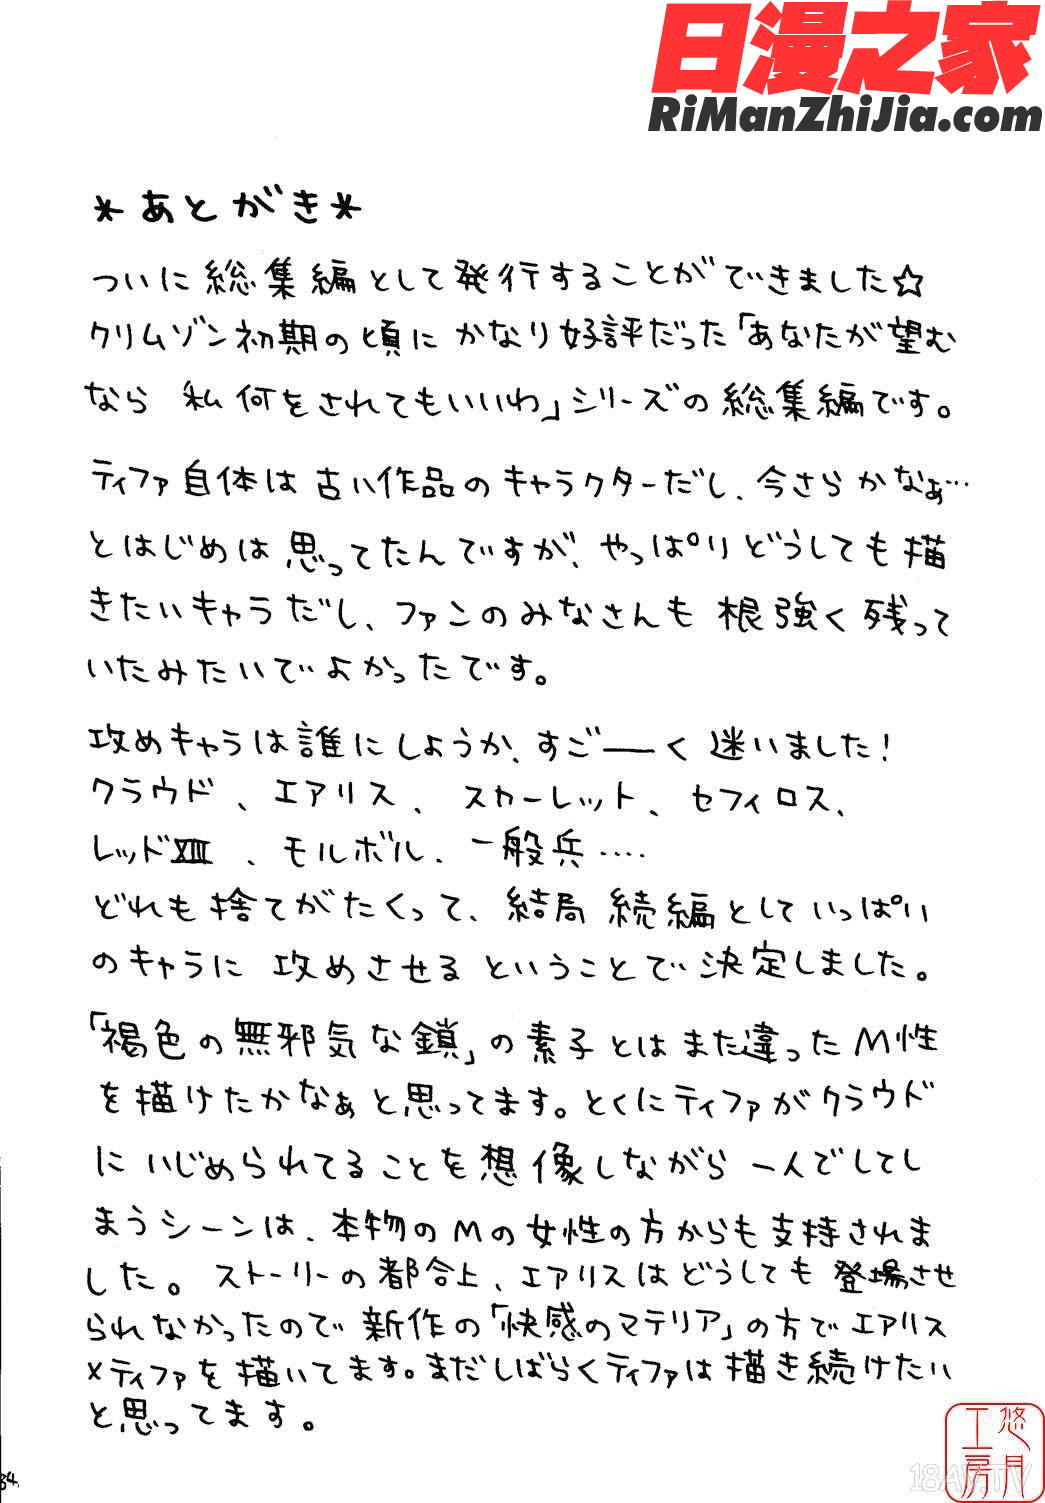 日漫之家
RiManZhiJia.com
*あとがき*
ついに総集編として発行することができました☆
クリムゾン初期の頃にかなり好評だった「あなたが望む
なら 私何をされてもいいわ」シリーズの総集編です。
ティファ自体は古い作品のキャラクターだし、今さらかなぁ…
とはじめは思ってたんですが、やっぱりどうしても描
きたいキャラだし、ファンのみなさんも根強く残って
いたみたいでよかったです。
攻めキャラは誰にしようか、すごーーく迷いました!
クラウド、エアリス、スカーレット、セフィロス、
レッドXIII、モルボル、一般兵‥‥
どれも捨てがたくって、結局続編としていっぱい
のキャラに攻めさせるということで決定しました。
「褐色の無邪気な鎖」の素子とはまた違ったM性
を描けたかなぁと思ってます。とくにティファがクラウド
にいじめられてることを想像しながら一人でしてし
まうシーンは、本物のMの女性の方からも支持されま
した。ストーリーの都合上、エアリスはどうしても登場させ
られなかったので新作の「快感のマテリア」の方でエアリス
×ティファを描いてます。まだしばらくティファは描き続けたい
と思ってます。
悠月工房
18AV.TV
34